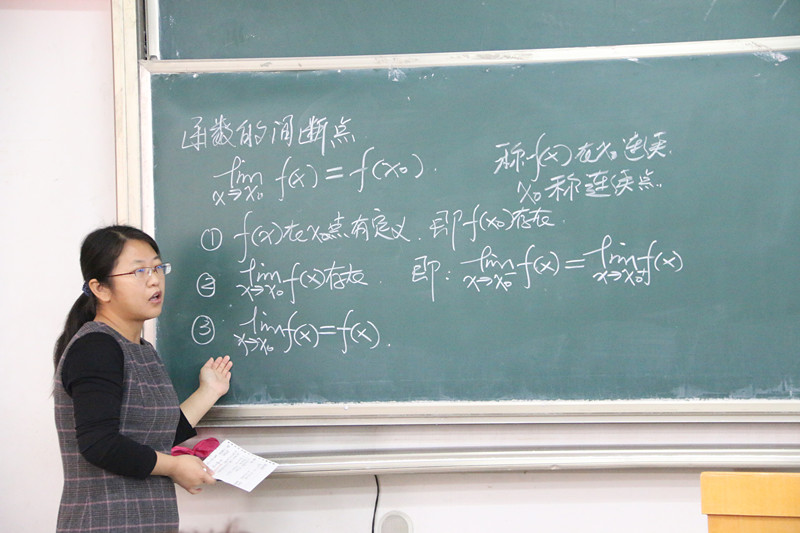 函数的间断点
lim x→x₀ f(x) = f(x₀).
称f(x)在x₀连续.
x₀称连续点.
① f(x)在x₀点有定义. 即f(x₀)存在.
② lim x→x₀ f(x)存在. 即: lim x→x₀⁻ f(x) = lim x→x₀⁺ f(x)
③ lim x→x₀ f(x) = f(x).